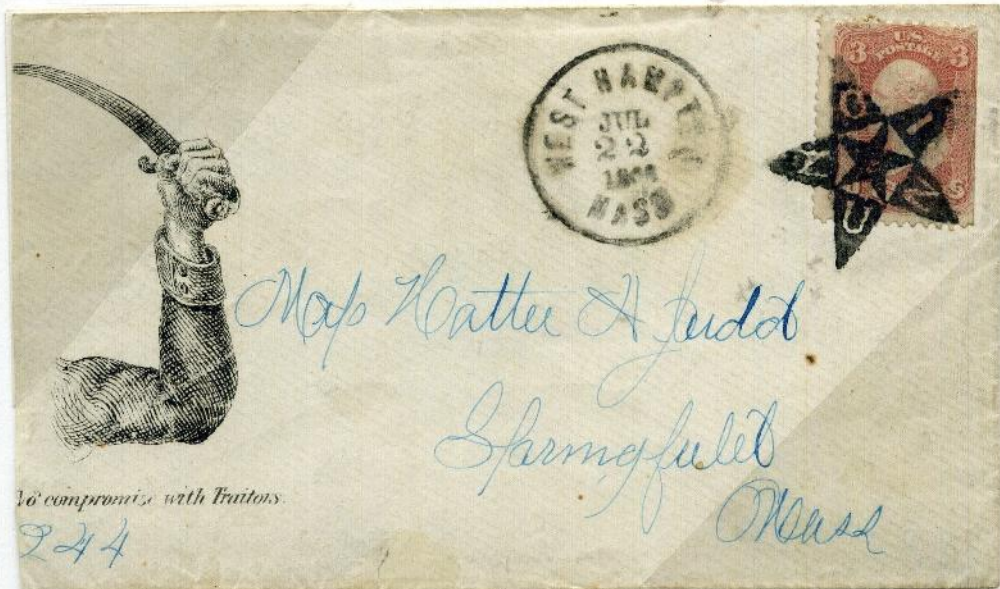 WEST HAMPTON
JUL
22
MASS
U.S.
POSTAGE
3 3
S
U
Hattie A Judd
Springfield
Mass
No compromise with Traitors.
244